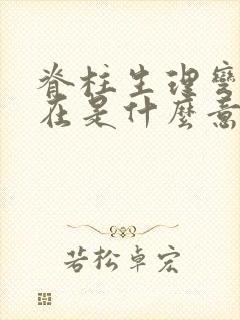 脊柱生理
在是什麼意
若松卓宏